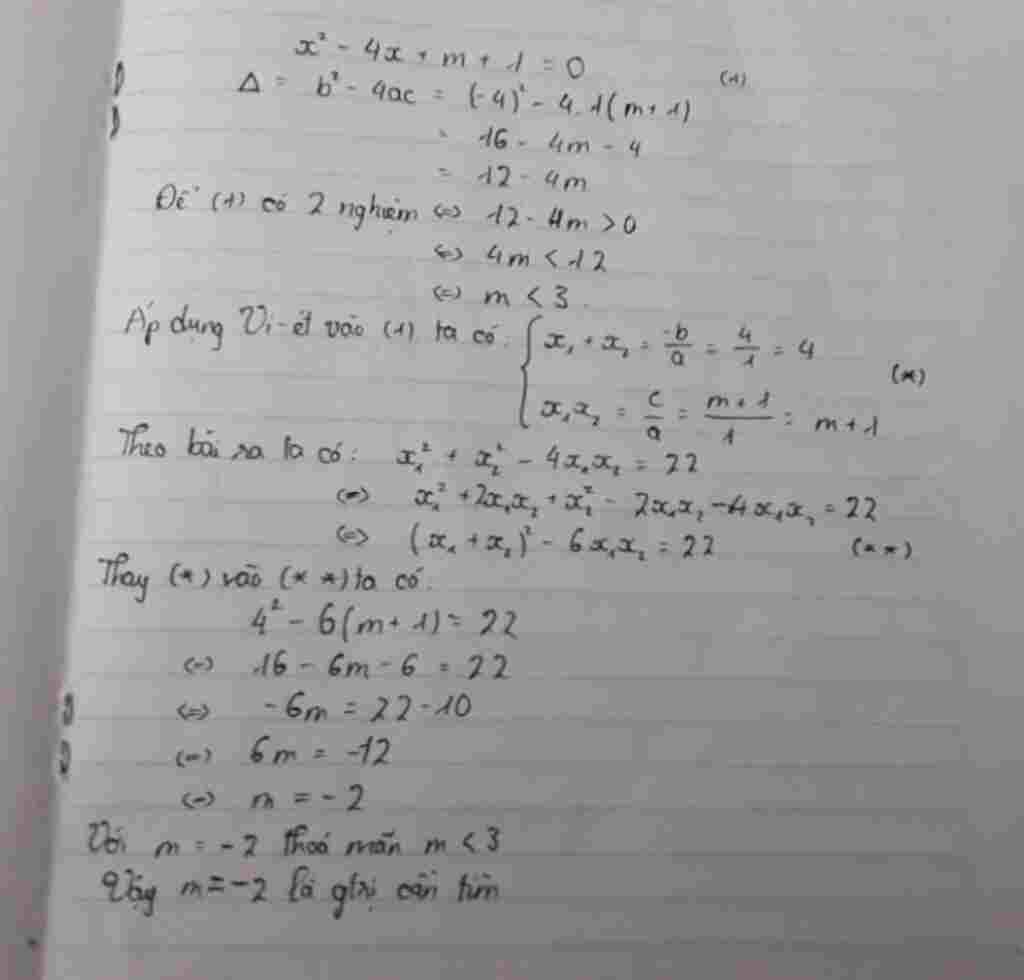 x² - 4x + m + 1 = 0 (1)
Δ = b² - 4ac = (-4)² - 4.1(m+1)
= 16 - 4m - 4
= 12 - 4m
Để (1) có 2 nghiệm <=> 12 - 4m > 0
<=> 4m < 12
<=> m < 3.
Áp dụng Vi-ét vào (1) ta có: { x₁ + x₂ = -b/a = 4/1 = 4
x₁x₂ = c/a = (m+1)/1 = m+1 (*)
Theo bài ra ta có: x₁² + x₂² - 4x₁x₂ = 22
<=> x₁² + 2x₁x₂ + x₂² - 2x₁x₂ - 4x₁x₂ = 22
<=> (x₁ + x₂)² - 6x₁x₂ = 22 (**)
Thay (*) vào (**) ta có:
4² - 6(m+1) = 22
<=> 16 - 6m - 6 = 22
<=> -6m = 22 - 10
<=> 6m = -12
<=> m = -2
Với m = -2 thoả mãn m < 3
Vậy m = -2 là gtrị cần tìm